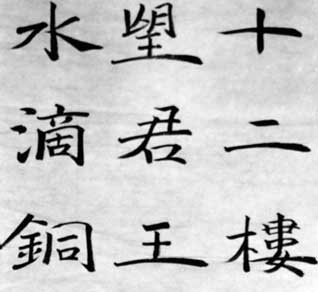 十二樓
望君王
水滴銅